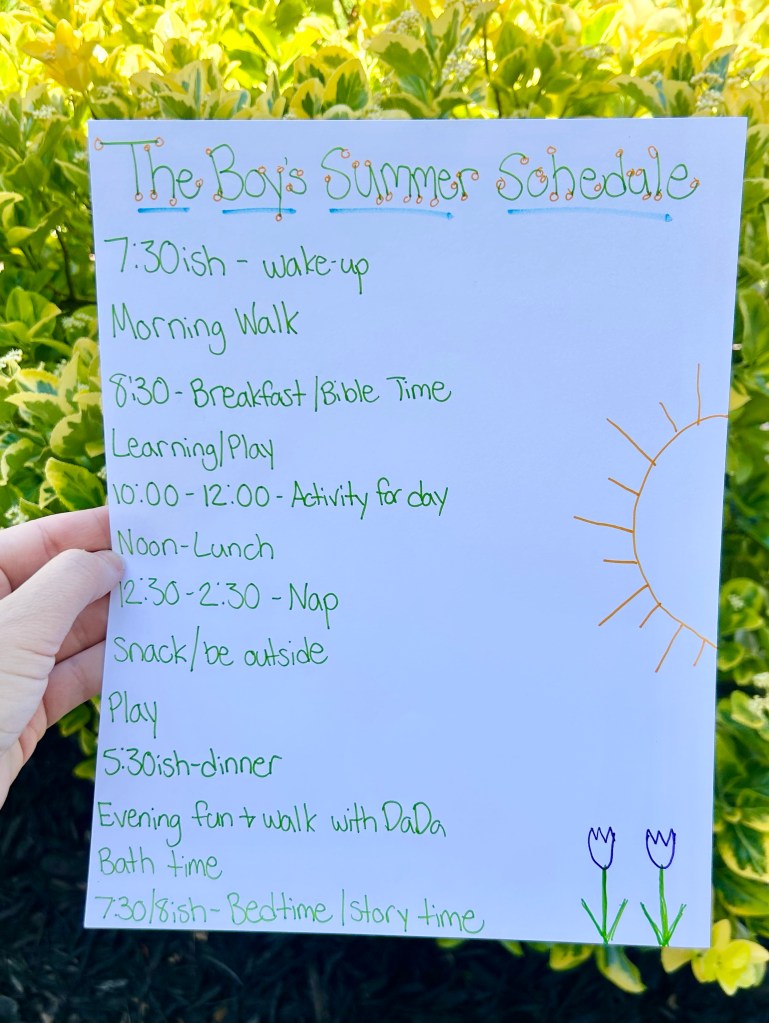 The Boy's Summer Schedule
7:30ish - wake-up
Morning Walk
8:30 - Breakfast/Bible Time
Learning/Play
10:00 - 12:00 - Activity for day
Noon-Lunch
12:30-2:30 - Nap
Snack/be outside
Play
5:30ish-dinner
Evening fun + walk with DaDa
Bath time
7:30/8ish- Bedtime/story time